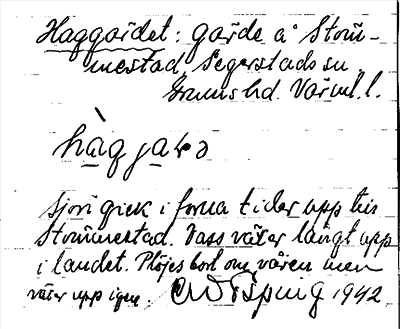 Haggärdet: gärde å Stom-
mestad, Segerstads sn
Grums hd. Värml. l.
hàgjạlə
Sjön gick i forna tider upp till
Stommestad. Vass växer långt upp
i landet. Plöjes bort om våren men
växer upp igen. 1942